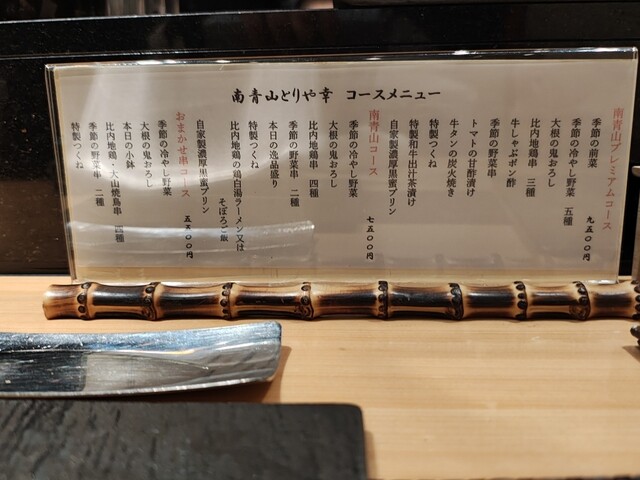 南青山とりや幸 コースメニュー
南青山プレミアムコース
九五〇〇円
季節の前菜
季節の冷やし野菜 五種
大根の鬼おろし
比内地鶏串 三種
牛しゃぶポン酢
季節の野菜串
トマトの甘酢漬け
牛タンの炭火焼き
特製つくね
特製和牛出汁茶漬け
自家製濃厚黒蜜プリン
南青山コース
七五〇〇円
季節の冷やし野菜
大根の鬼おろし
比内地鶏串 四種
季節の野菜串 二種
本日の逸品盛り
特製つくね
比内地鶏の鶏白湯ラーメン又は
そぼろご飯
自家製濃厚黒蜜プリン
おまかせ串コース
五五〇〇円
季節の冷やし野菜
大根の鬼おろし
本日の小鉢
比内地鶏・大山焼鳥串 四種
季節の野菜串 二種
特製つくね